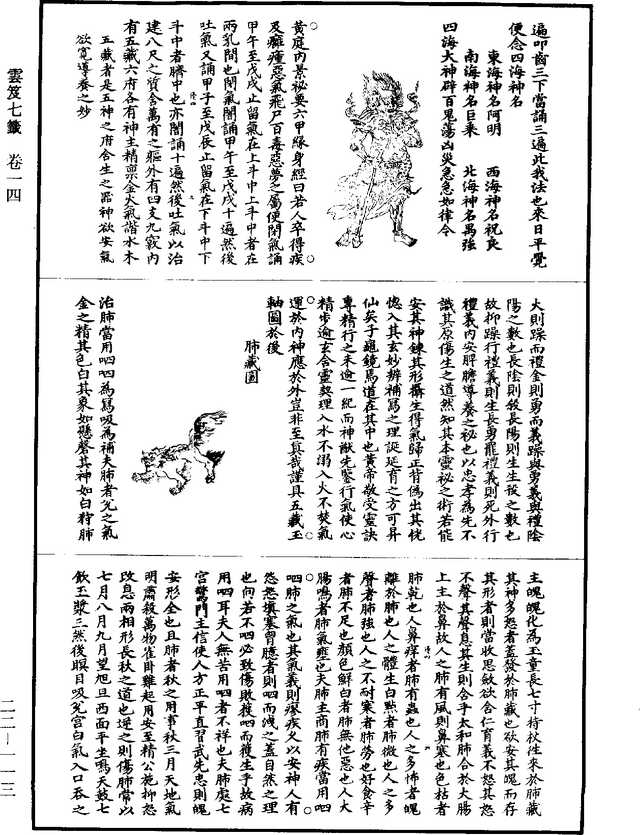 遍叩齒三下當誦三遍此我法也來日平覺
便念四海神名
東海神名阿明 西海神名祝良
南海神名巨乘 北海神名禺強
四海大神辟百鬼蕩凶災急急如律令
黃庭內景秘要六甲緣身經曰若人卒得疾
及癲癉惡氣飛尸百毒惡夢之屬便閉氣誦
甲午至戊戌止留氣在上斗中上斗中者在
兩乳間也閉氣闇誦甲午至戊戌十遍然後
吐氣又誦甲子至戊辰止留氣在下斗中下
斗中者臍中也亦闇誦十遍然後吐氣以治
建八尺之質含萬有之軀外有四支九竅內
有五藏六府各有神主精稟金火氣諧水木
五藏者是五神之府合生之器神欲安氣
欲寬導養之妙
雲笈七籤 卷一四
火則躁而禮金則勇而義躁與勇義與禮陰
陽之數也長陰則殺長陽則生生殺之數也
故抑躁行禮義則生長勇罷禮義則死外行
禮義內安脬膽導養之秘也以忠孝為先不
識其原傷生之道然知其本靈秘之術若能
安其神鍊其形攝生得氣歸正背偽出其恍
惚入其玄妙辨補寫之理誕延育之方可昇
仙矣子龜鏡焉道在其中也黃帝敬受靈訣
專精行之未逾一紀而神猷先鑒行氣使心
精步逾玄合靈契理入水不溺入火不焚氣
運於內神應於外豈非至真哉謹具五藏玉
軸圖於後
肺藏圖
治肺當用呬呬為寫吸為補夫肺者兌之氣
金之精其色白其象如懸磬其神如白狩肺
主魄魄化為玉童長七寸持杖往來於肺藏
其神多怒者蓋發於肺藏也欲安其魄而存
其形者則當收思斂欲合仁育義不怒其怒
不聲其聲息其生則合乎太和肺合於大腸
上主於鼻故人之肺有風則鼻塞也色枯者
肺乾也人鼻痒者肺有蟲也人之多怖者魄
離於肺也人之體生白點者肺微也人之多
聲者肺強也人之不耐寒者肺勞也好食辛
者肺不足也顏色鮮白者肺無他惡也人大
腸鳴者肺氣壅也夫肺主商肺有疾當用呬
呬肺之氣也其氣義則瘳疾又以安神人有
怨怒填塞胷臆者則呬而洩之蓋自然之理
也向若不呬必致傷敗獲呬而獲生乎故病
用呬耳夫人無苦用呬者不祥也夫肺處七
宮驚門主信使人方正平直習武先忠則魄
安形全也且肺者秋之用事秋三月天地氣
明肅殺萬物雀卧雞起用安至精公施抑怒
改息兩相形長秋之道也逆之則傷肺常以
七月八月九月望旭旦西面平坐鳴天鼓七
飲玉漿三然後瞑目吸兌宮白氣入口吞之
二二—一一三